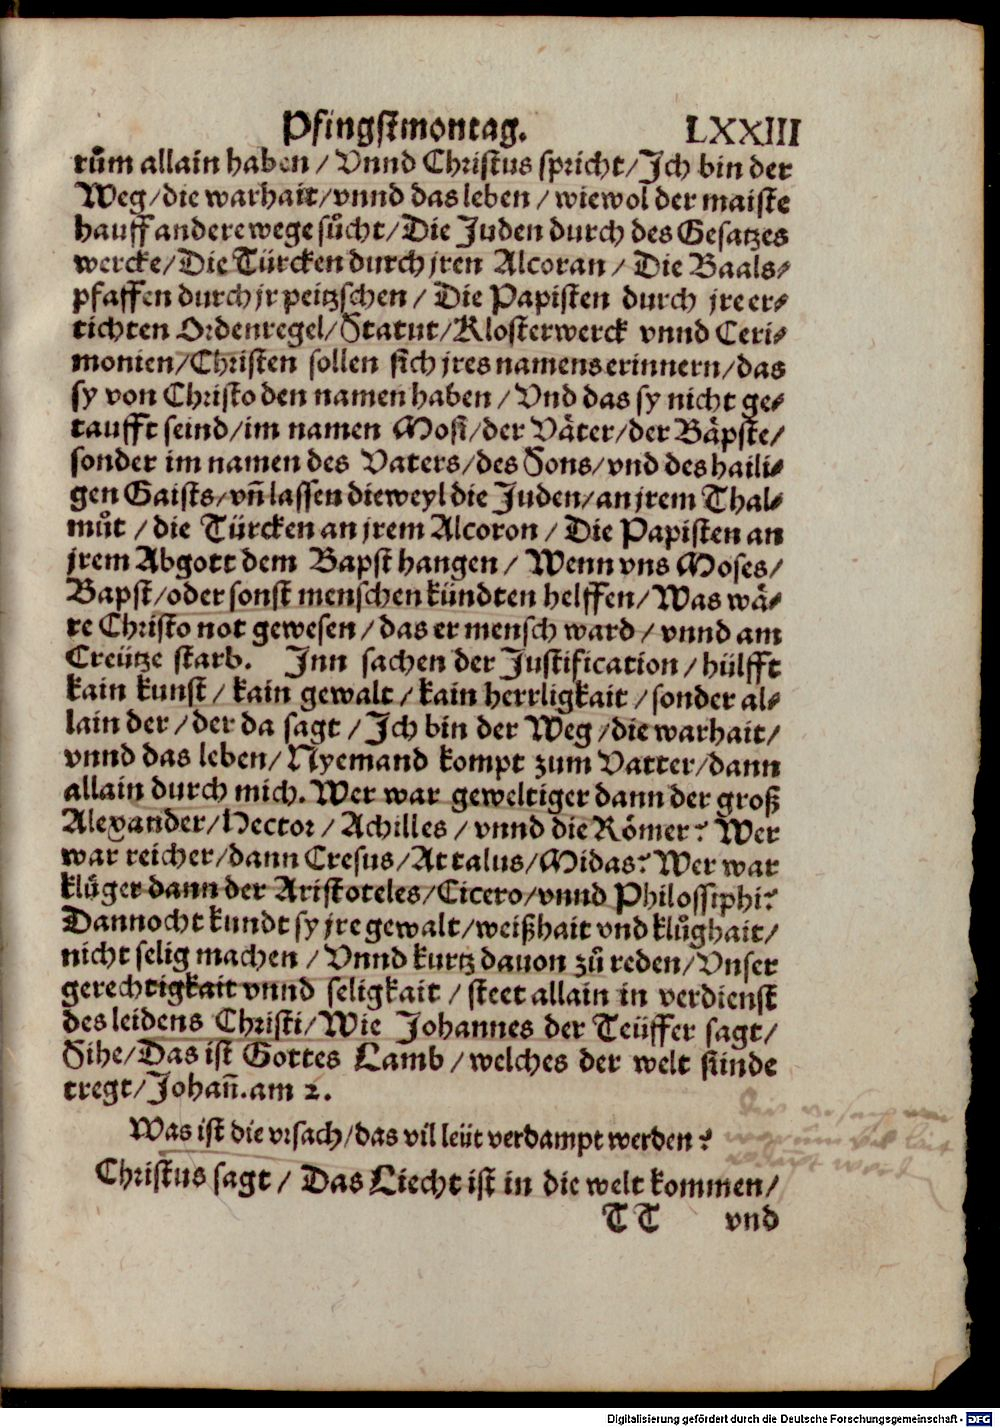 Pfingstmontag. LXXIII
tům allain haben / Vnnd Christus spricht / Ich bin der
Weg / die warhait / vnnd das leben / wiewol der maiste
hauff andere wege sůcht / Die Juden durch des Gesatzes
wercke / Die Türcken durch jren Alcoran / Die Baals⸗
pfaffen durch jr peitzschen / Die Papisten durch jre er⸗
tichten Ordenregel / Statut / Klosterwerck vnnd Ceri⸗
monien / Christen sollen sich jres namens erinnern / das
sy von Christo den namen haben / Vnd das sy nicht ge⸗
taufft seind / im namen Mosi / der Väter / der Bäpste /
sonder im namen des Vaters / des Sons / vnd des haili⸗
gen Gaists / vñ lassen dieweyl die Juden / an jrem Thal⸗
můt / die Türcken an jrem Alcoron / Die Papisten an
jrem Abgott dem Bapst hangen / Wenn vns Moses /
Bapst / oder sonst menschen kündten helffen / Was wä⸗
re Christo not gewesen / das er mensch ward / vnnd am
Creütze starb. Inn sachen der Justification / hülfft
kain kunst / kain gewalt / kain herrligkait / sonder al⸗
lain der / der da sagt / Ich bin der Weg / die warhait /
vnnd das leben / Nyemand kompt zum Vatter / dann
allain durch mich. Wer war geweltiger dann der groß
Alexander / Hector / Achilles / vnnd die Römer? Wer
war reicher / dann Cresus / Attalus / Midas? Wer war
klůger dann der Aristoteles / Cicero / vnnd Philossiphi?
Dannocht kundt sy jre gewalt / weißhait vnd klůghait /
nicht selig machen / Vnnd kurtz dauon zů reden / Vnser
gerechtigkait vnnd seligkait / steet allain in verdienst
des leidens Christi / Wie Johannes der Teüffer sagt /
Sihe / Das ist Gottes Lamb / welches der welt sünde
tregt / Johañ. am 2.
Was ist die vrsach / das vil leüt verdampt werden?
Christus sagt / Das Liecht ist in die welt kommen /
TT vnd
Digitalisierung gefördert durch die Deutsche Forschungsgemeinschaft - DFG